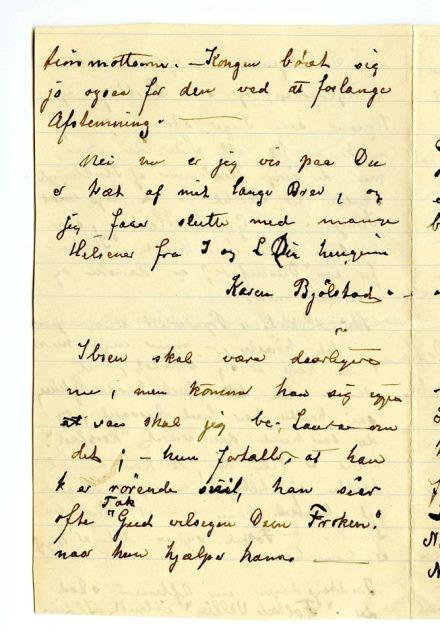 sinsmottoerne. – Kongen bøiet sig
jo ogsaa for den ved at forlange
Afstemning.
Nei nu er jeg vis paa Du
er træt af mit lange Brev, og
jeg faar slutte med mange
Hilsener fra I og L Din hengivne
Karen Bjølstad.
Ibsen skal være daarligere
nu, men kommer han sig igjen
saa skal jeg be. Laura om
det; – hun fortaller, at han
er rørende snil, han sier
ofte "Tak Gud velsigne Dem Frøken."
naar hun hjælper ham.